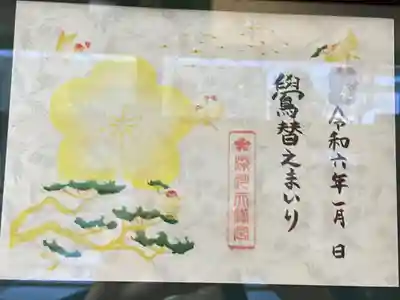 令和六年一月 日
鷽替えまいり